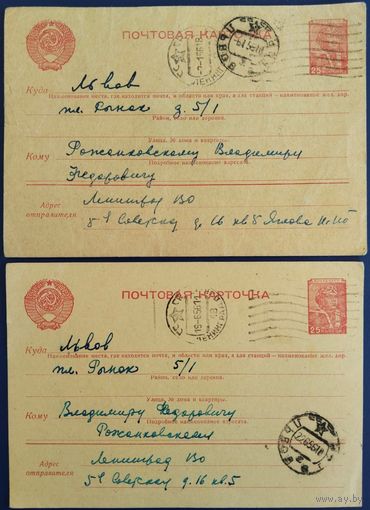 ПОЧТОВАЯ КАРТОЧКА
25
Куда Львов
Наименование места, где находится почта, и области или края, а для станций – наименование жел. дор.
пл. Рынок д. 5/1
Район, село или деревня.
Улица, № дома и квартиры.
Кому Рожанковскому Владимиру
Подробное наименование адресата.
Федоровичу
Адрес отправителя
Ленинград 130
5я Советская д. 16 кв 5
ПОЧТОВАЯ КАРТОЧКА
25
Куда Львов
Наименование места, где находится почта, и области или края, а для станций – наименование жел. дор.
пл. Рынок 5/1
Район, село или деревня.
Улица, № дома и квартиры.
Кому Владимиру Федоровичу
Подробное наименование адресата.
Рожанковскому
Адрес отправителя
Ленинград 130
5я Советская д. 16 кв. 5
au.ay.by